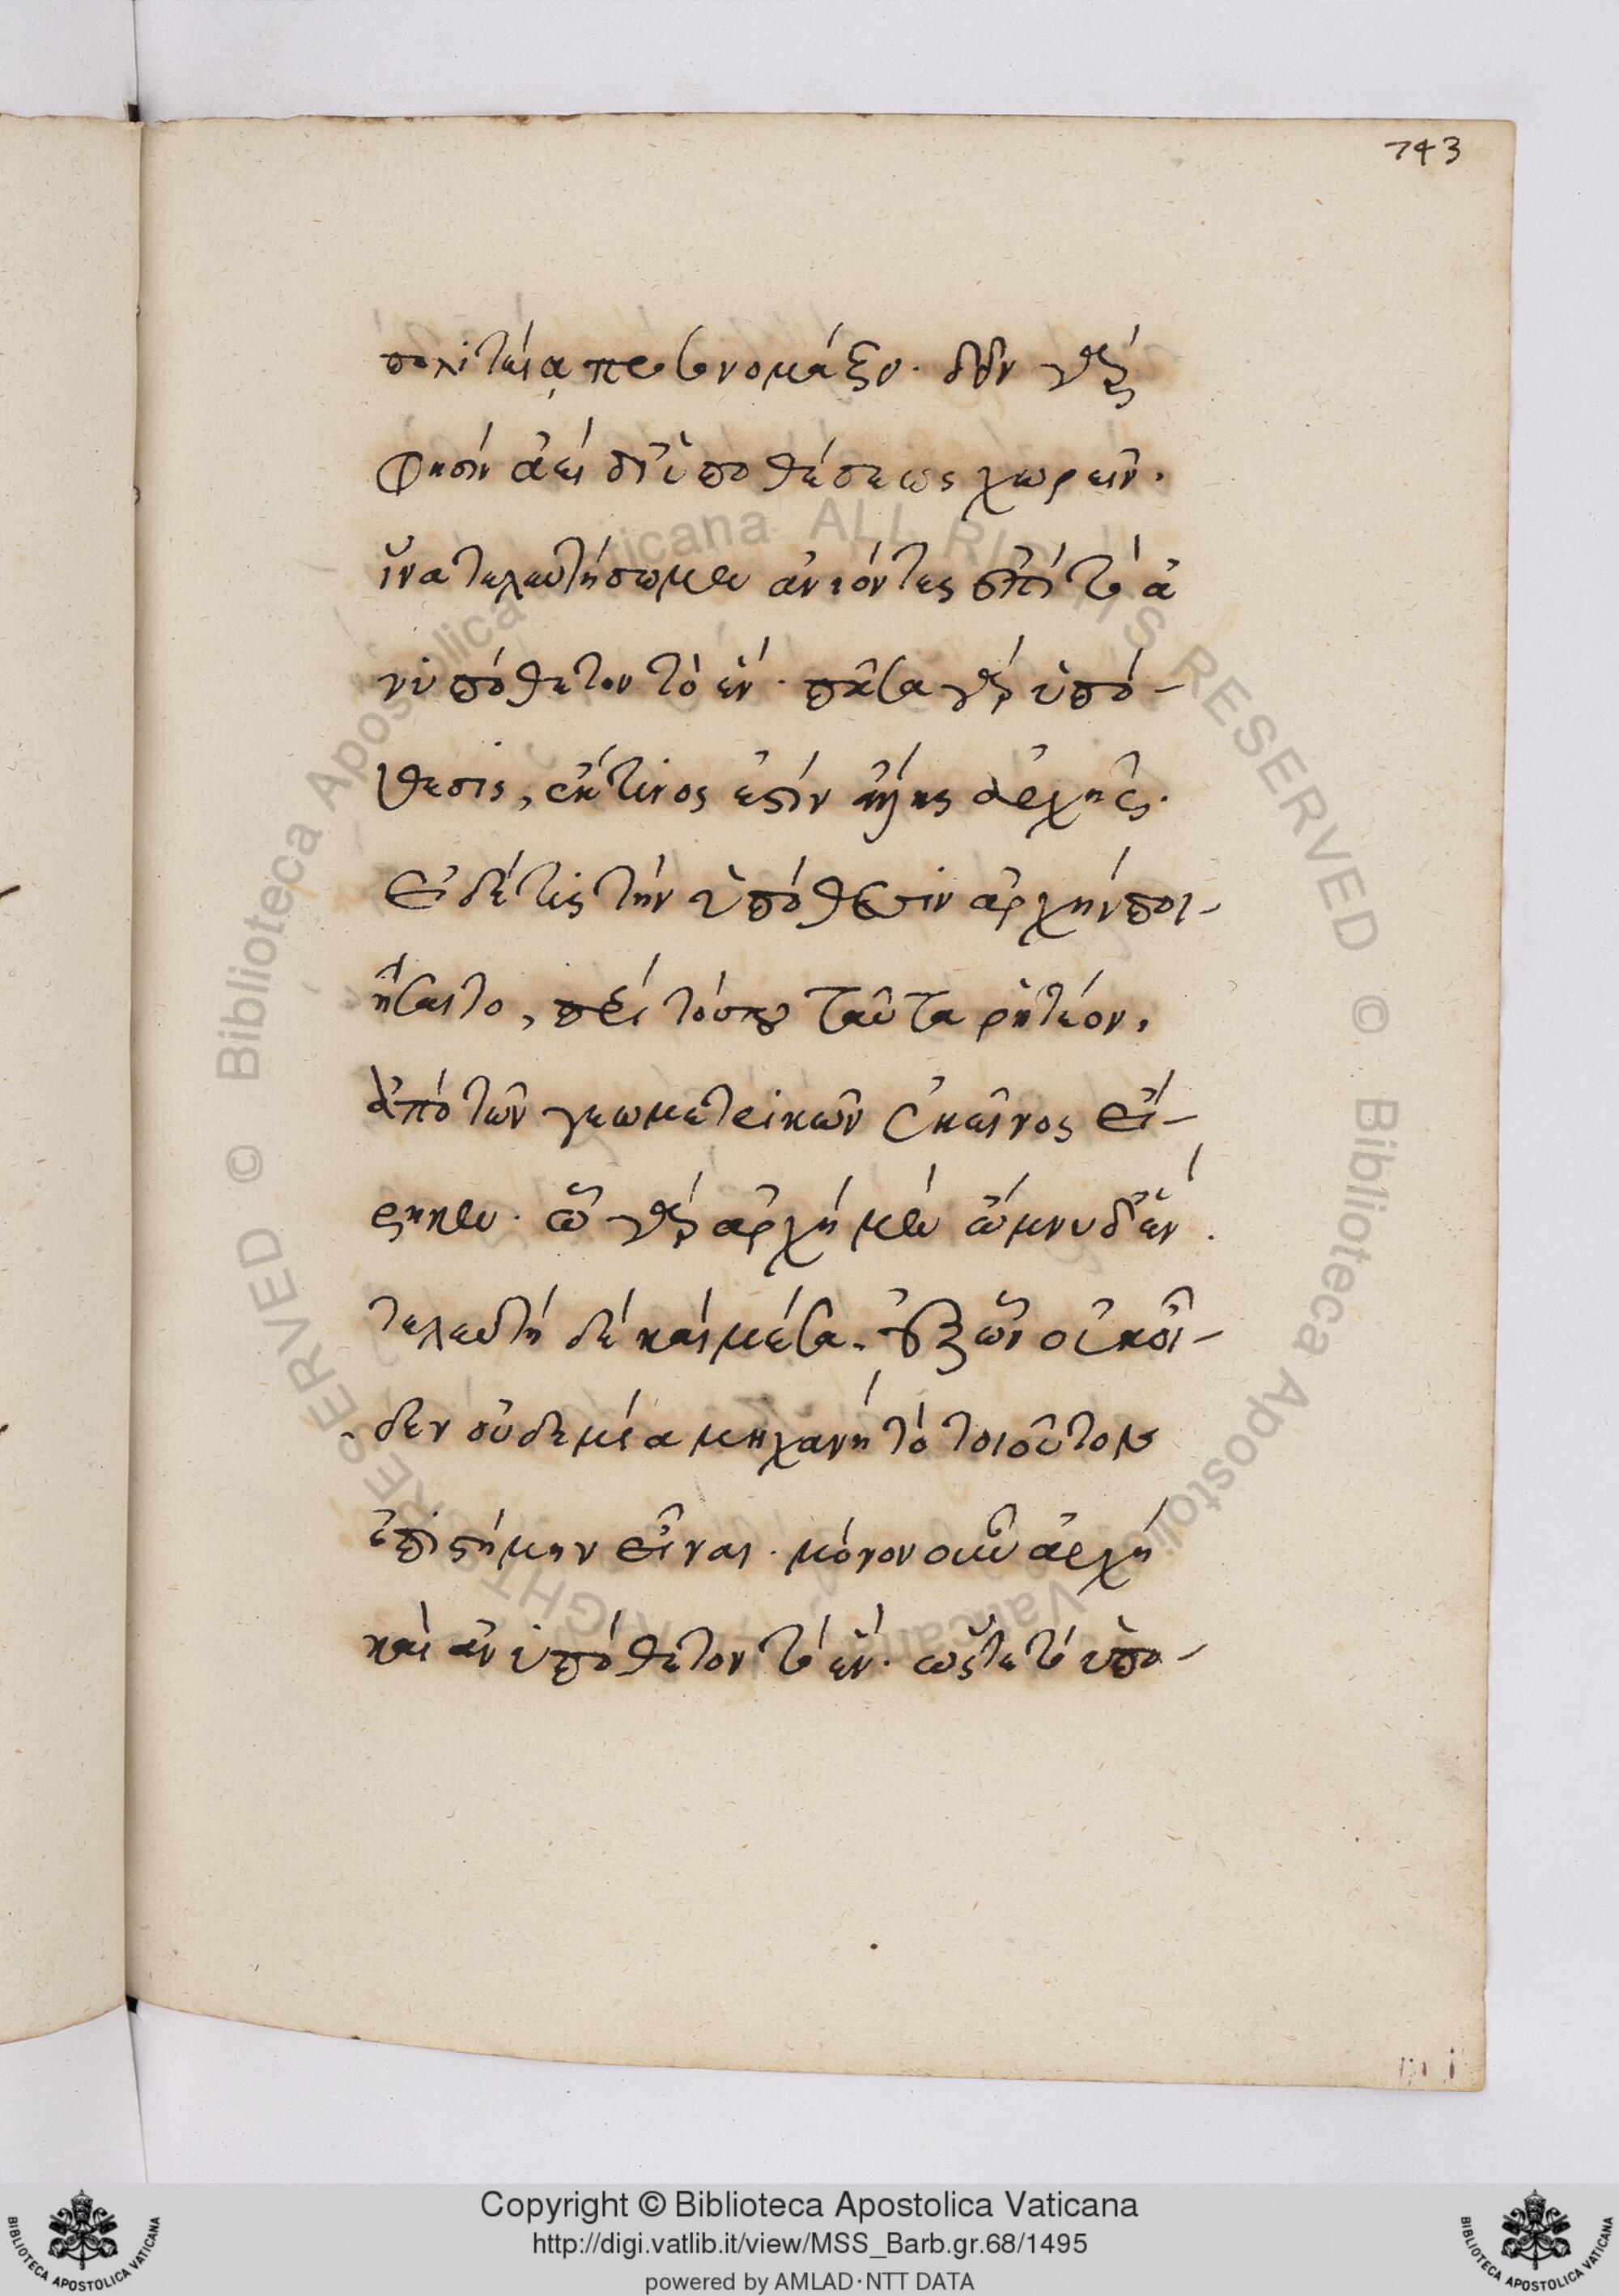 743
πολιτείᾳ προσνομάξει. δεῖν γάρ
φησίν ἀεί δι' ὑποθέσεως χωρεῖν.
ἵνα τελευτήσωμεν ἀνιόντες ἐπί τό ἀ
νυπόθετον τὸ ἕν. πᾶσα γάρ ὑπό-
θεσις, ἔκ τινος ἐστίν ἄλλης ἀρχῆς.
εἰ δέ τις τήν ὑπόθεσιν ἀρχήν ποι-
ήσαιτο, περί τούτου ταῦτα ῥητέον.
ἀπό τῶν γεωμετρικῶν ἐκεῖνος εἴ-
ρηκεν. ᾧ γάρ ἀρχή μέν ᾧ μή οἶδεν.
τελευτή δέ καί μέσα. ἐξ ὧν οὐκ οἶ-
δεν οὐδεμία μηχανή τό τοιοῦτον
ἐπιστήμην εἶναι. μόνον οὖν ἀρχή
καὶ ἀνυπόθετον τό ἕν. ὥστε τό ὑπο-
Copyright © Biblioteca Apostolica Vaticana
http://digi.vatlib.it/view/MSS_Barb.gr.68/1495
powered by AMLAD·NTT DATA